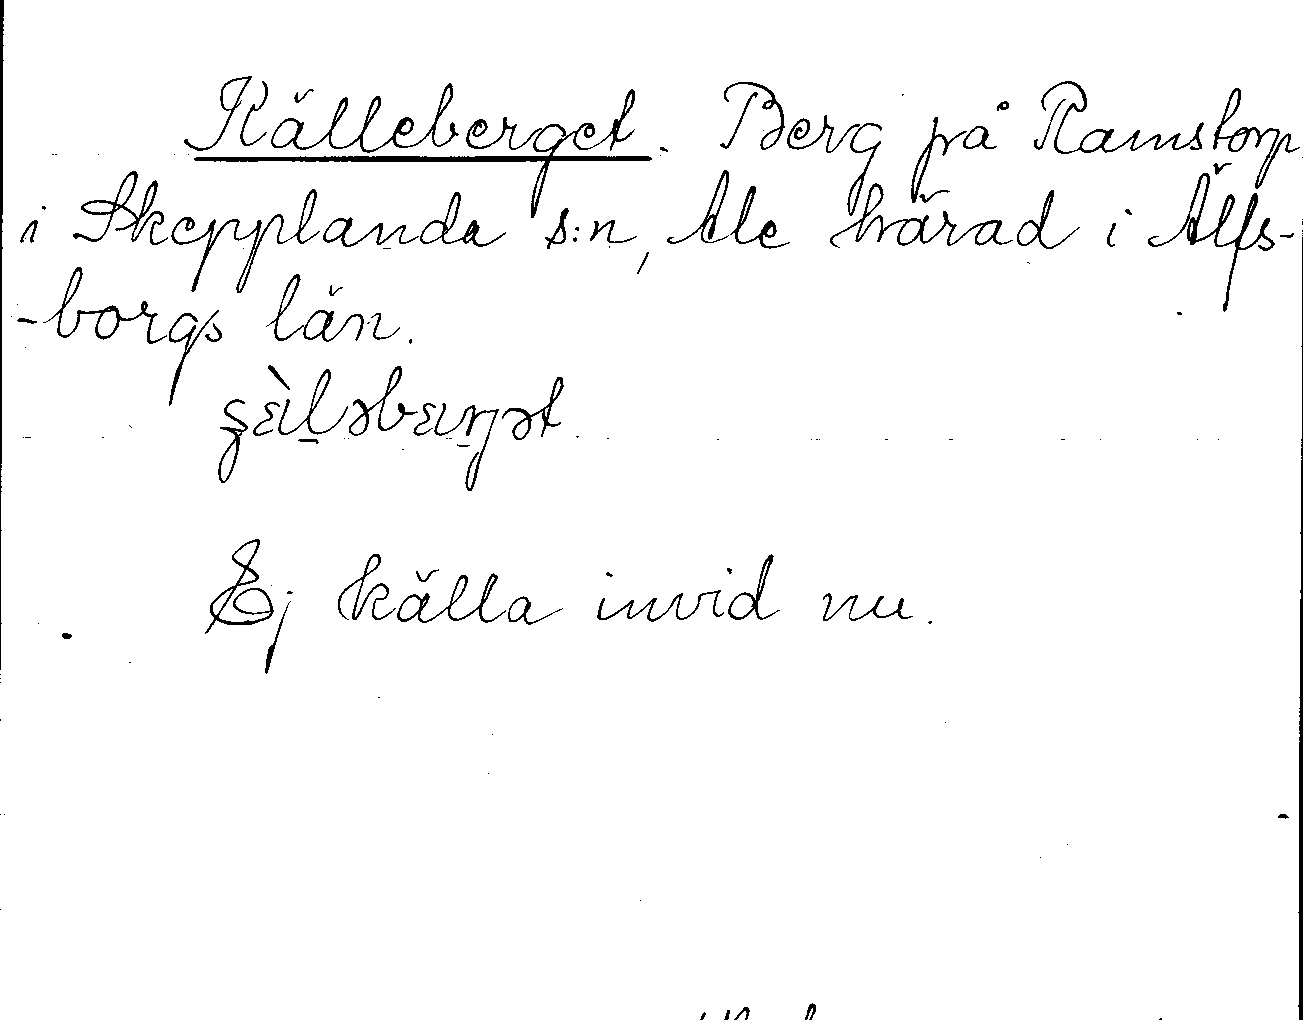 Källeberget. Berg på Ramstorp
i Skepplanda s:n, Ale härad i Älfs-
-borgs län.
Ej källa invid nu.